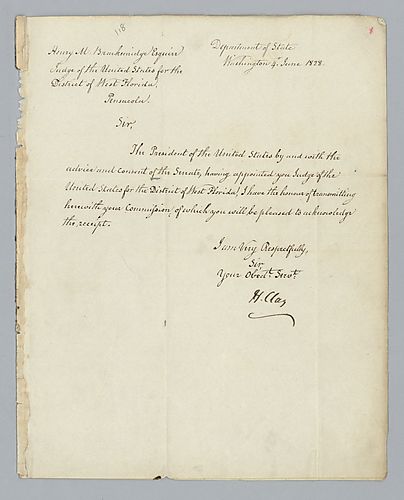 118
Henry M. Brackenridge Esquire
Judge of the United States for the
District of West Florida,
Pensacola.
Department of State
Washington 4 June 1828.
Sir,
The President of the United States by and with the
advice and consent of the Senate, having appointed you Judge of the
United States for the District of West Florida, I have the honour of transmitting
herewith your Commission, of which you will be pleased to acknowledge
the receipt.
I am Very Respectfully,
Sir
Your Obedt. Servt.
H. Clay